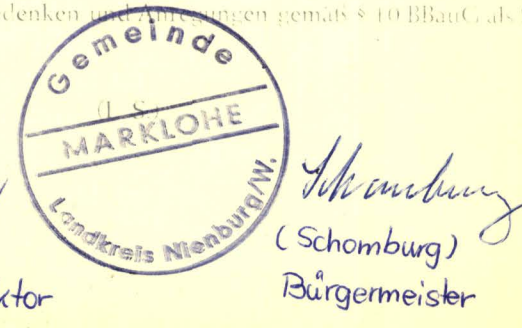 denken und Anregungen gemäß § 10 BBauG als
Gemeinde
(L. S.)
MARKLOHE
Landkreis Nienburg/W.
Schomburg
(Schomburg)
Bürgermeister
ktor